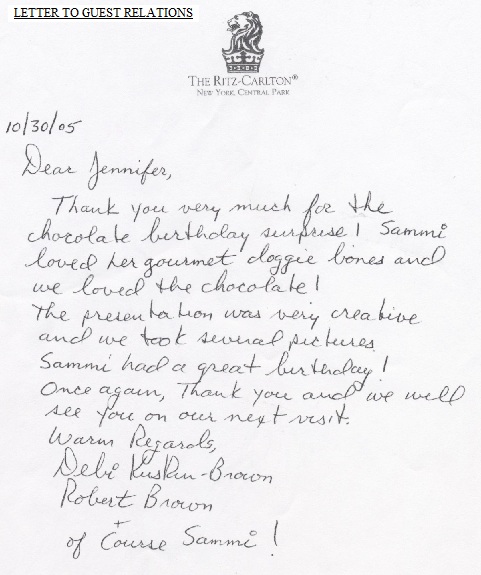 LETTER TO GUEST RELATIONS
THE RITZ-CARLTON®
NEW YORK, CENTRAL PARK
10/30/05
Dear Jennifer,
Thank you very much for the
chocolate birthday surprise! Sammi
loved her gourmet doggie bones and
we loved the chocolate!
The presentation was very creative
and we took several pictures.
Sammi had a great birthday!
Once again, Thank you and we will
see you on our next visit.
Warm Regards,
Debi Kuskin-Brown
Robert Brown
+
of Course Sammi!